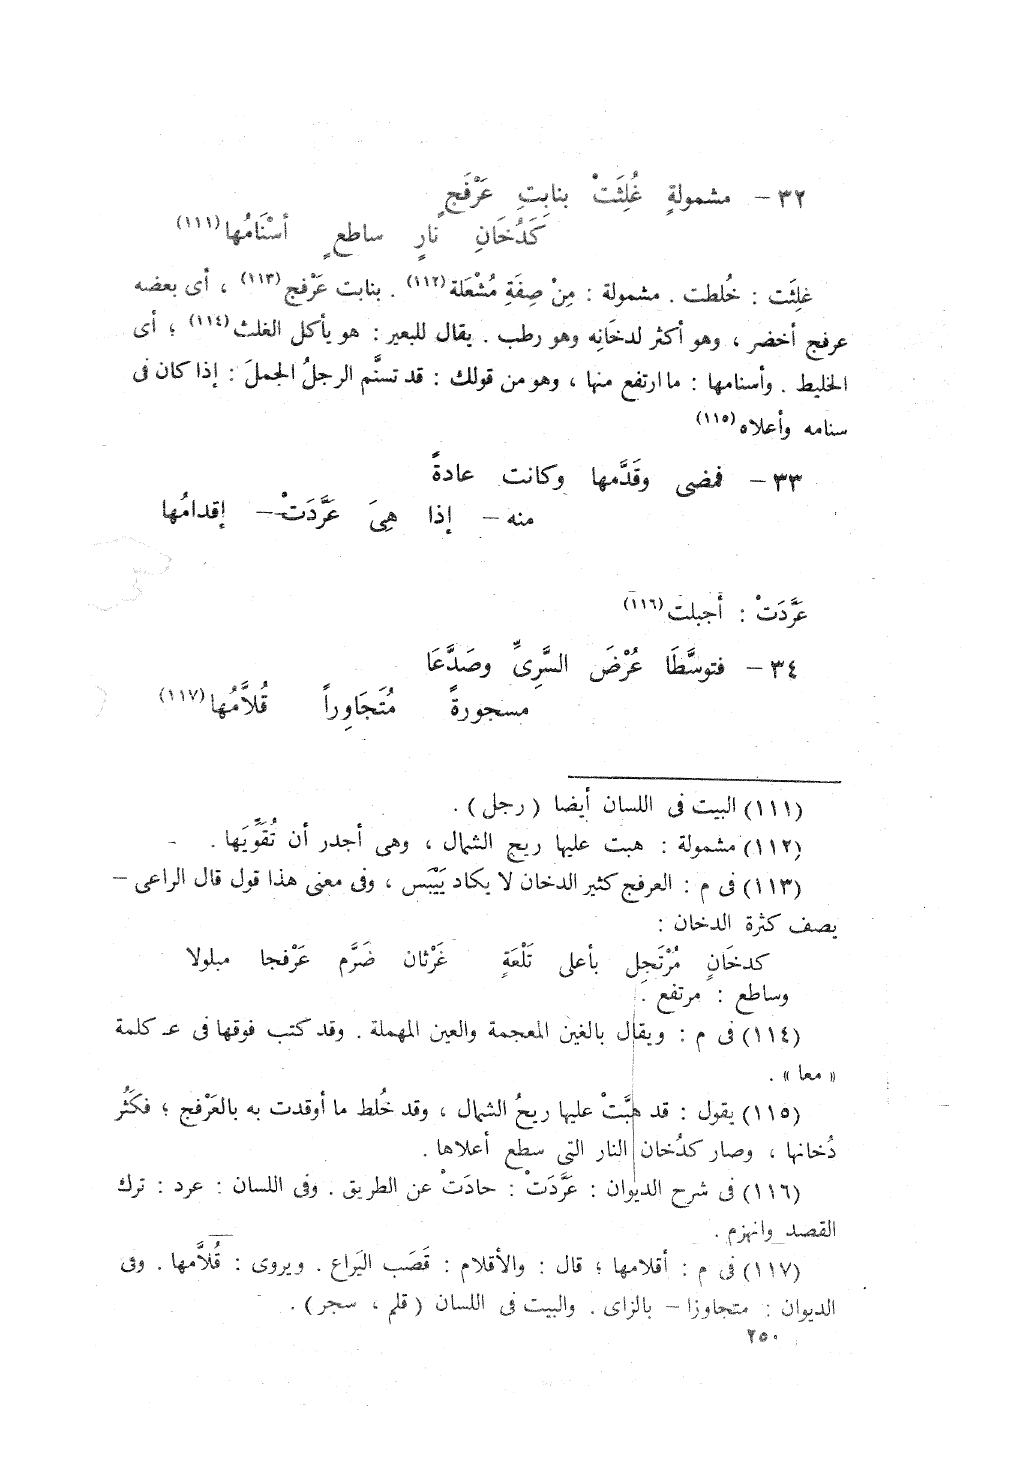 ٣٢ – مشمولةٍ غُلِثَتْ بنابِتِ عَرْفَجٍ
كَدُخَانِ نارٍ ساطعٍ أسْنَامُها(١١١)
غلِثَت : خُلطت . مشمولة : مِنْ صِفَةِ مُشْعَلة(١١٢) . بنابت عَرْفج(١١٣) ، أى بعضه
عرفج أخضر ، وهو أكثر لدخَانِه وهو رطب . يقال للبعير : هو يأكل الغلث(١١٤) ؛ أى
الخليط . وأسنامها : ما ارتفع منها ، وهو من قولك : قد تسنَّم الرجلُ الجملَ : إذا كان فى
سنامه وأعلاه(١١٥)
٣٣ – فمضى وقَدَّمها وكانت عادةً
منه – إذا هِىَ عَرَّدَتْ – إقدامُها
عَرَّدَتْ : أجبلت(١١٦)
٣٤ – فتوسَّطَا عُرْضَ السَّرِىِّ وصَدَّعَا
مسجورةً مُتَجَاوِراً قُلاَّمُها(١١٧)
(١١١) البيت فى اللسان أيضا ( رجل ) .
(١١٢) مشمولة : هبت عليها ريح الشمال ، وهى أجدر أن تُقَوِّيَها .
(١١٣) فى م : العرفج كثير الدخان لا يكاد يَيْبَس ، وفى معنى هذا قول قال الراعى –
يصف كثرة الدخان :
كدخَانٍ مُرْتَجِلٍ بأعلى تَلْعَةٍ غَرْثان ضَرَّم عَرْفجا مبلولا
وساطع : مرتفع .
(١١٤) فى م : ويقال بالغين المعجمة والعين المهملة . وقد كتب فوقها فى عـ كلمة
« معا » .
(١١٥) يقول : قد هبَّتْ عليها ريحُ الشمال ، وقد خُلط ما أوقدت به بالعَرْفج ؛ فكَثُر
دُخانها ، وصار كدُخان النار التى سطع أعلاها .
(١١٦) فى شرح الديوان : عَرَّدَتْ : حادَتْ عن الطريق . وفى اللسان : عرد : ترك
القصد وانهزم .
(١١٧) فى م : أقلامها ؛ قال : والأقلام : قَصَب اليَراع . ويروى : قُلاَّمها . وفى
الديوان : متجاوزا – بالزاى . والبيت فى اللسان ( قلم ، سجر ) .
٢٥٠